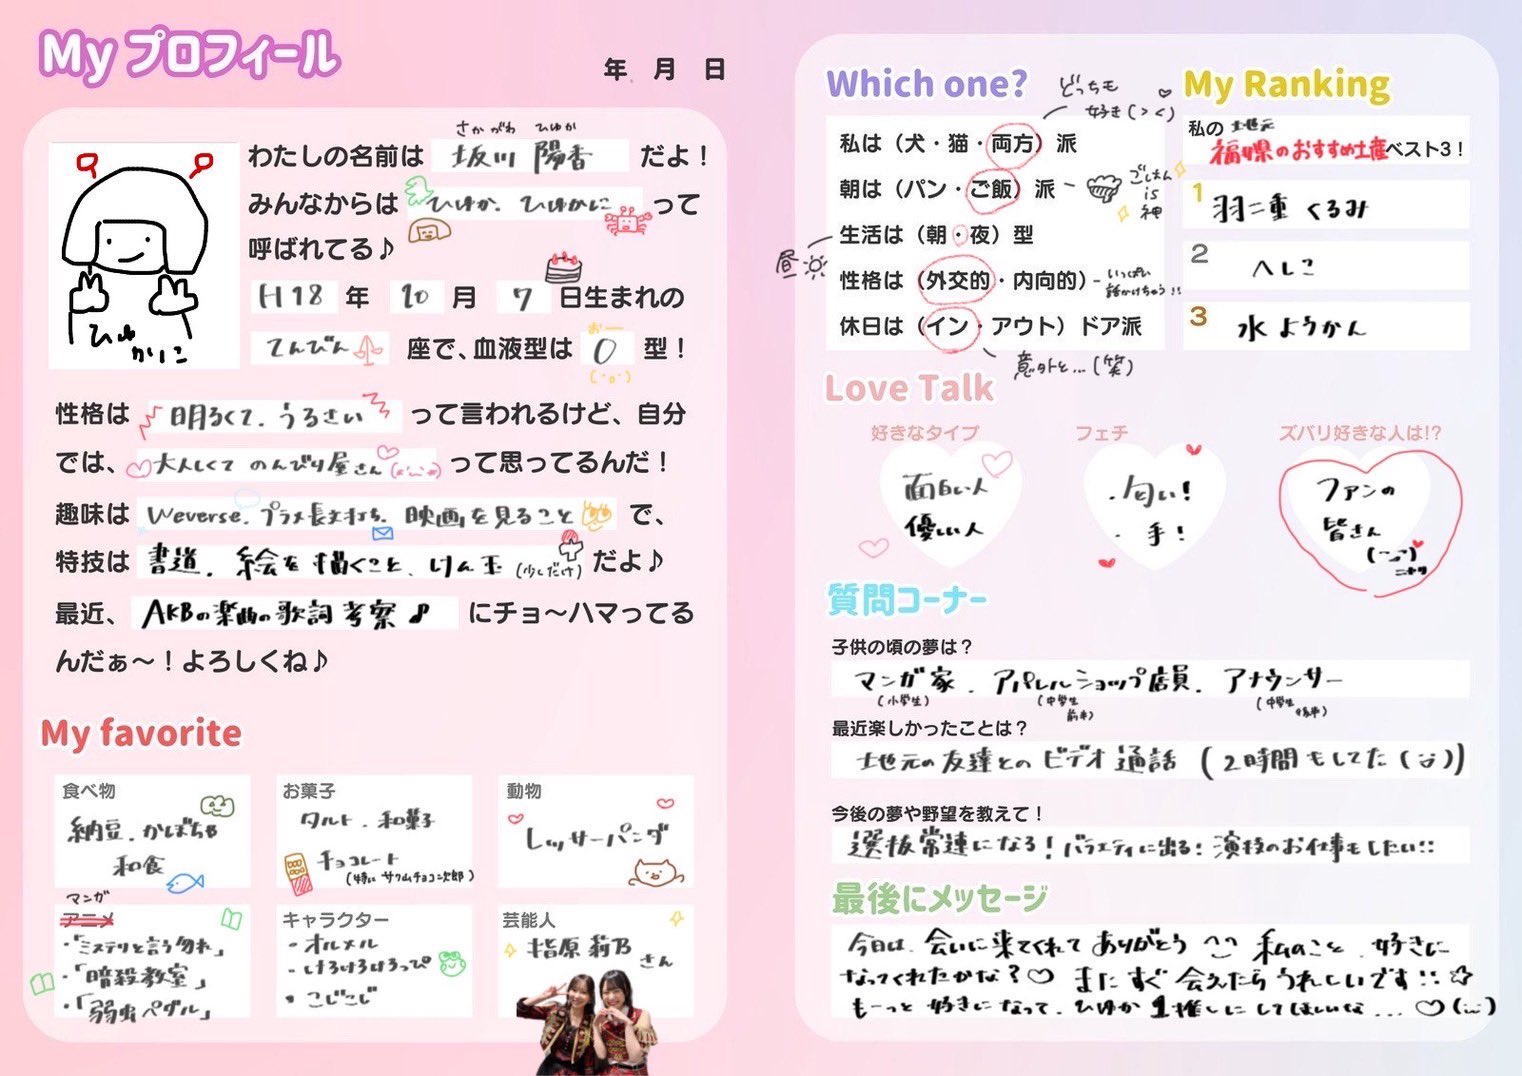 My プロフィール
年 月 日
さかがわ ひゆか
わたしの名前は 坂川 陽香 だよ！
みんなからは ひゆか、ひゆかに って
呼ばれてる♪
H18 年 10 月 7 日生まれの
てんびん 座で、血液型は O 型！
おー
ひゆかに
性格は 明るくて、うるさい って言われるけど、自分
では、大人しくて のんびり屋さん って思ってるんだ！
趣味は Weverse、プラメ長文打ち、映画を見ること で、
特技は 書道、絵を描くこと、けん玉 (少しだけ) だよ♪
最近、AKBの楽曲の歌詞考察♪ にチョ～ハマってる
んだぁ～！よろしくね♪
My favorite
食べ物
納豆、かぼちゃ
和食
お菓子
タルト、和菓子
チョコレート
(特に サクムチョコ次郎)
動物
レッサーパンダ
マンガ
アニメ
・「ミステリと言う勿れ」
・「暗殺教室」
・「弱虫ペダル」
キャラクター
・オルメル
・けろけろけろっぴ
・こじこじ
芸能人
指原 莉乃
さん
Which one?
どっちも
好き(><)
私は（犬・猫・両方）派
朝は（パン・ご飯）派
ごはん
is
神
生活は（朝・夜）型
昼
性格は（外交的・内向的）
いっぱい
話かけちゃう!!
休日は（イン・アウト）ドア派
意外と…(笑)
My Ranking
私の 地元
福井県のおすすめ土産ベスト3！
1 羽二重くるみ
2 へしこ
3 水ようかん
Love Talk
好きなタイプ
面白い人
優しい人
フェチ
・匂い！
・手！
ズバリ好きな人は!?
ファンの
皆さん
ニヤリ
質問コーナー
子供の頃の夢は？
マンガ家、アパレルショップ店員、アナウンサー
(小学生)
(中学生
前半)
(中学生
後半)
最近楽しかったことは？
地元の友達とのビデオ通話 (2時間もしてた)
今後の夢や野望を教えて！
選抜常連になる！バラエティに出る！演技のお仕事もしたい!!
最後にメッセージ
今日は、会いに来てくれてありがとう^^ 私のこと、好きに
なってくれたかな？♡ またすぐ会えたらうれしいです!!☆
もーっと好きになって、ひゆか1推しにしてほしいな...♡